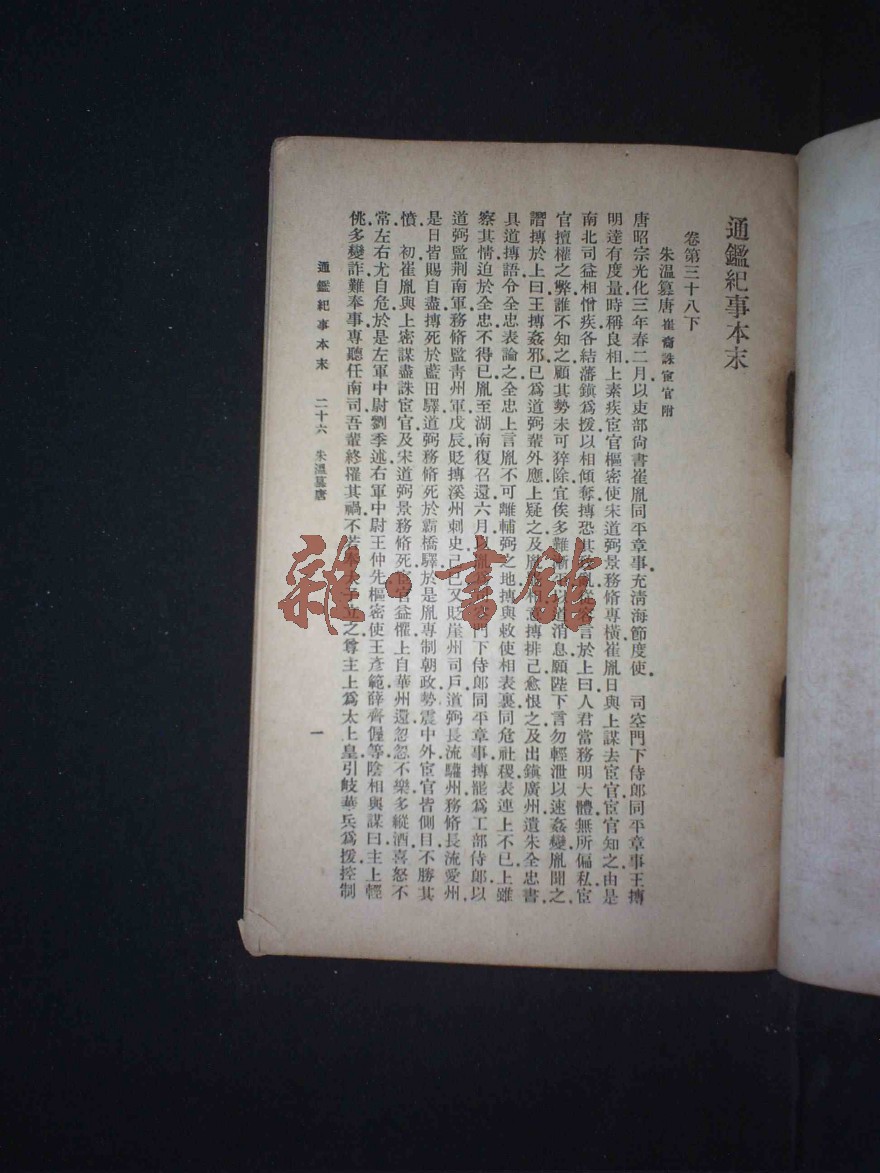 通鑑紀事本末
卷第三十八下
朱溫篡唐 崔胤誅宦官附
唐昭宗光化三年春二月以吏部尚書崔胤同平章事充淸海節度使 司空門下侍郎同平章事王摶
明達有度量時稱良相上素疾宦官樞密使宋道弼景務脩專橫崔胤日與上謀去宦官宦官知之由是
南北司益相憎疾各結藩鎭爲援以相傾奪摶恐其 言於上曰人君當務明大體無所偏私宦
官擅權之弊誰不知之顧其勢未可猝除宜俟多難 道消息願陛下言勿輕泄以速姦變胤聞之
譖摶於上曰王摶姦邪已爲道弼輩外應上疑之及胤 意摶排己愈恨之及出鎭廣州遺朱全忠書
具道摶語令全忠表論之全忠上言胤不可離輔弼之地摶與敕使相表裏同危社稷表連上不已上雖
察其情迫於全忠不得已胤至湖南復召還六月以胤爲 門下侍郎同平章事摶罷爲工部侍郎以
道弼監荆南軍務脩監靑州軍戊辰貶摶溪州刺史己巳又貶崖州司戶道弼長流驩州務脩長流愛州
是日皆賜自盡摶死於藍田驛道弼務脩死於霸橋驛於是胤專制朝政勢震中外宦官皆側目不勝其
憤 初崔胤與上密謀盡誅宦官及宋道弼景務脩死宦官益懼上自華州還忽忽不樂多縱酒喜怒不
常左右尤自危於是左軍中尉劉季述右軍中尉王仲先樞密使王彥範薛齊偓等陰相與謀曰主上輕
佻多變詐難奉事專聽任南司吾輩終罹其禍不若 之尊主上爲太上皇引岐華兵爲援控制
通鑑紀事本末 二十六 朱溫篡唐 一
雜·書館